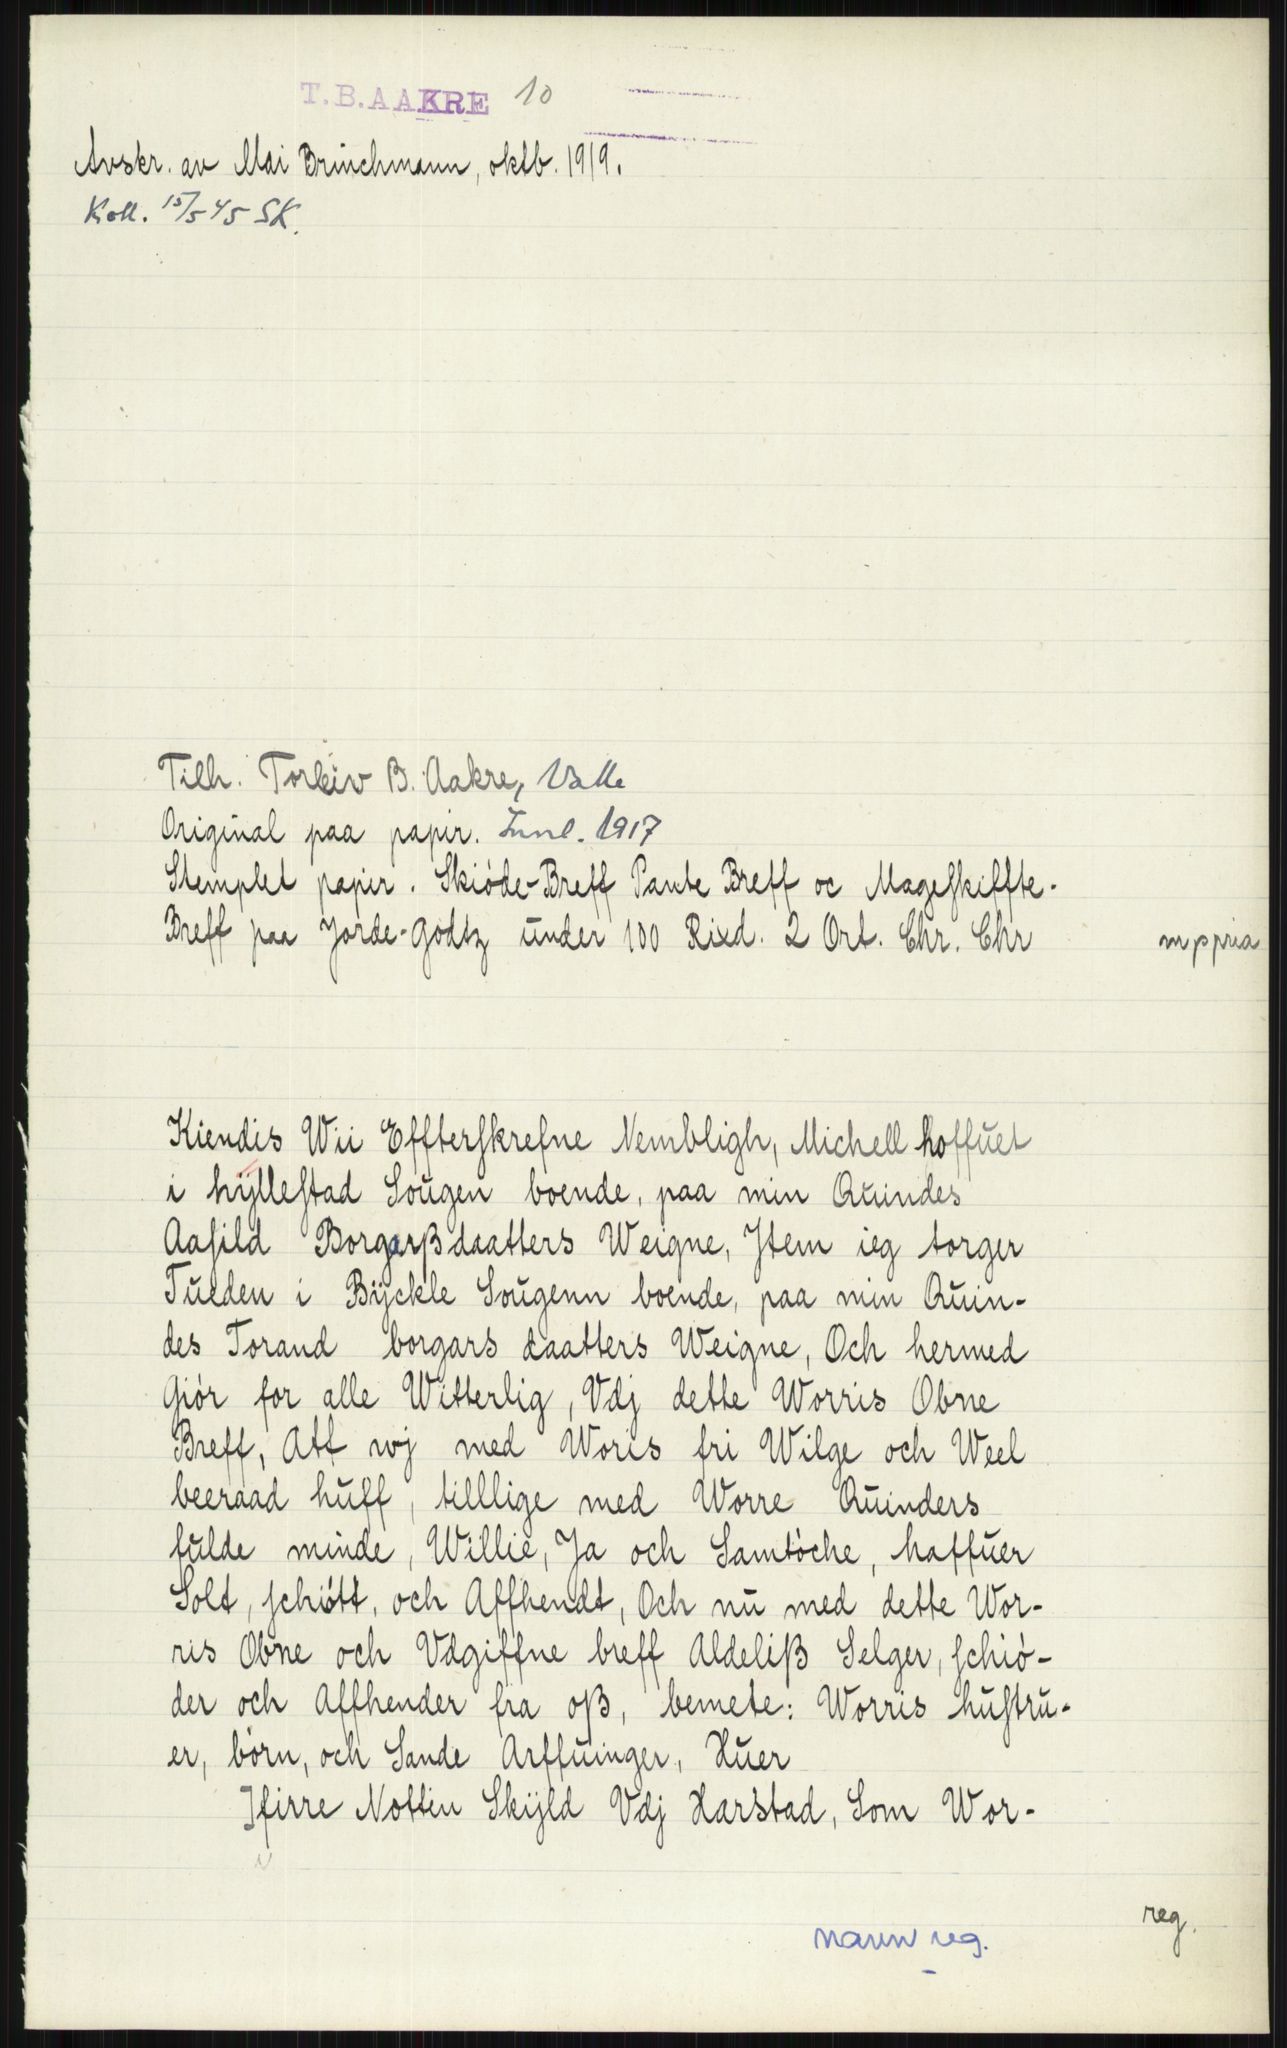 T.B.AAKRE 10
Avskr. av Mai Brinchmann, oktb. 1919.
Koll. 15/5 45 SK.
Tilh. Torleiv B. Aakre, Valle
Original paa papir. Innl. 1917
Stemplet papir. Skiöde-Breff Pante Breff oc Mageskiffte-
Breff paa Jorde-Godtz under 100 Rixd. 2 Ort. Chr. Chr mppria
Kiendis Wii Effterskrefne Nembligh, Michell hoffuet
i hÿllestad Sougen boende, paa min Quindes
Aasild Borgarßdaatters Weigne, Item ieg torger
Tueden i Bÿckle Sougenn boende, paa min Quin-
des Torand borgars daatters Weigne, Och hermed
Giör for alle Witterlig, Vdj dette Worris Obne
Breff, Att wj med Woris fri Wilge och Weel
beeraad huff, tilllige med Worre Quinders
fulde minde, Willie, Ja och Samtöche, haffuer
Solt, schiött, och Affhendt, Och nu med dette Wor-
ris Obne och Vdgiffne breff Aldeliß Selger, schiö-
der och Affhender fra oß, bemete: Worris hustru-
er, börn, och Sande Arffuinger, Huer
Ifirre Nottin Skÿld Vdj Harstad, Som Wor-
reg.
navnreg.